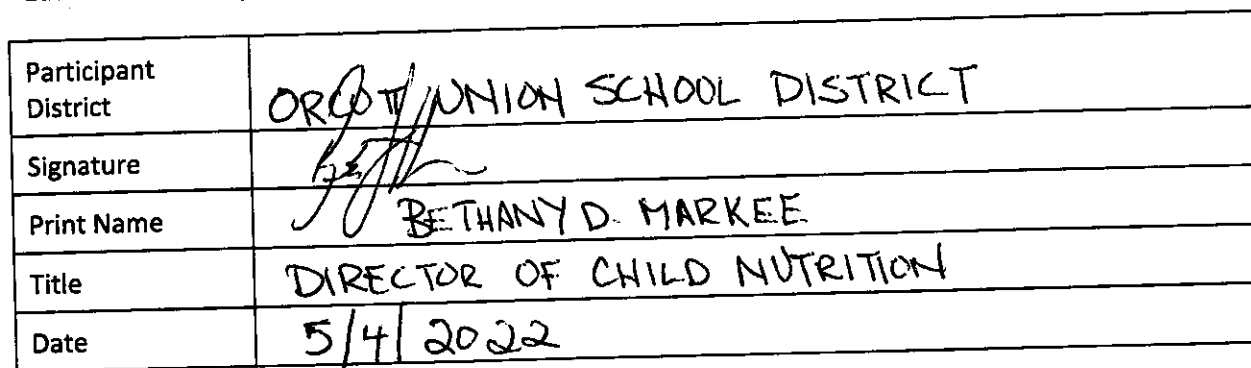 Participant
District
ORCUTT UNION SCHOOL DISTRICT
Signature
Print Name
BETHANY D. MARKEE
Title
DIRECTOR OF CHILD NUTRITION
Date
5/4/2022